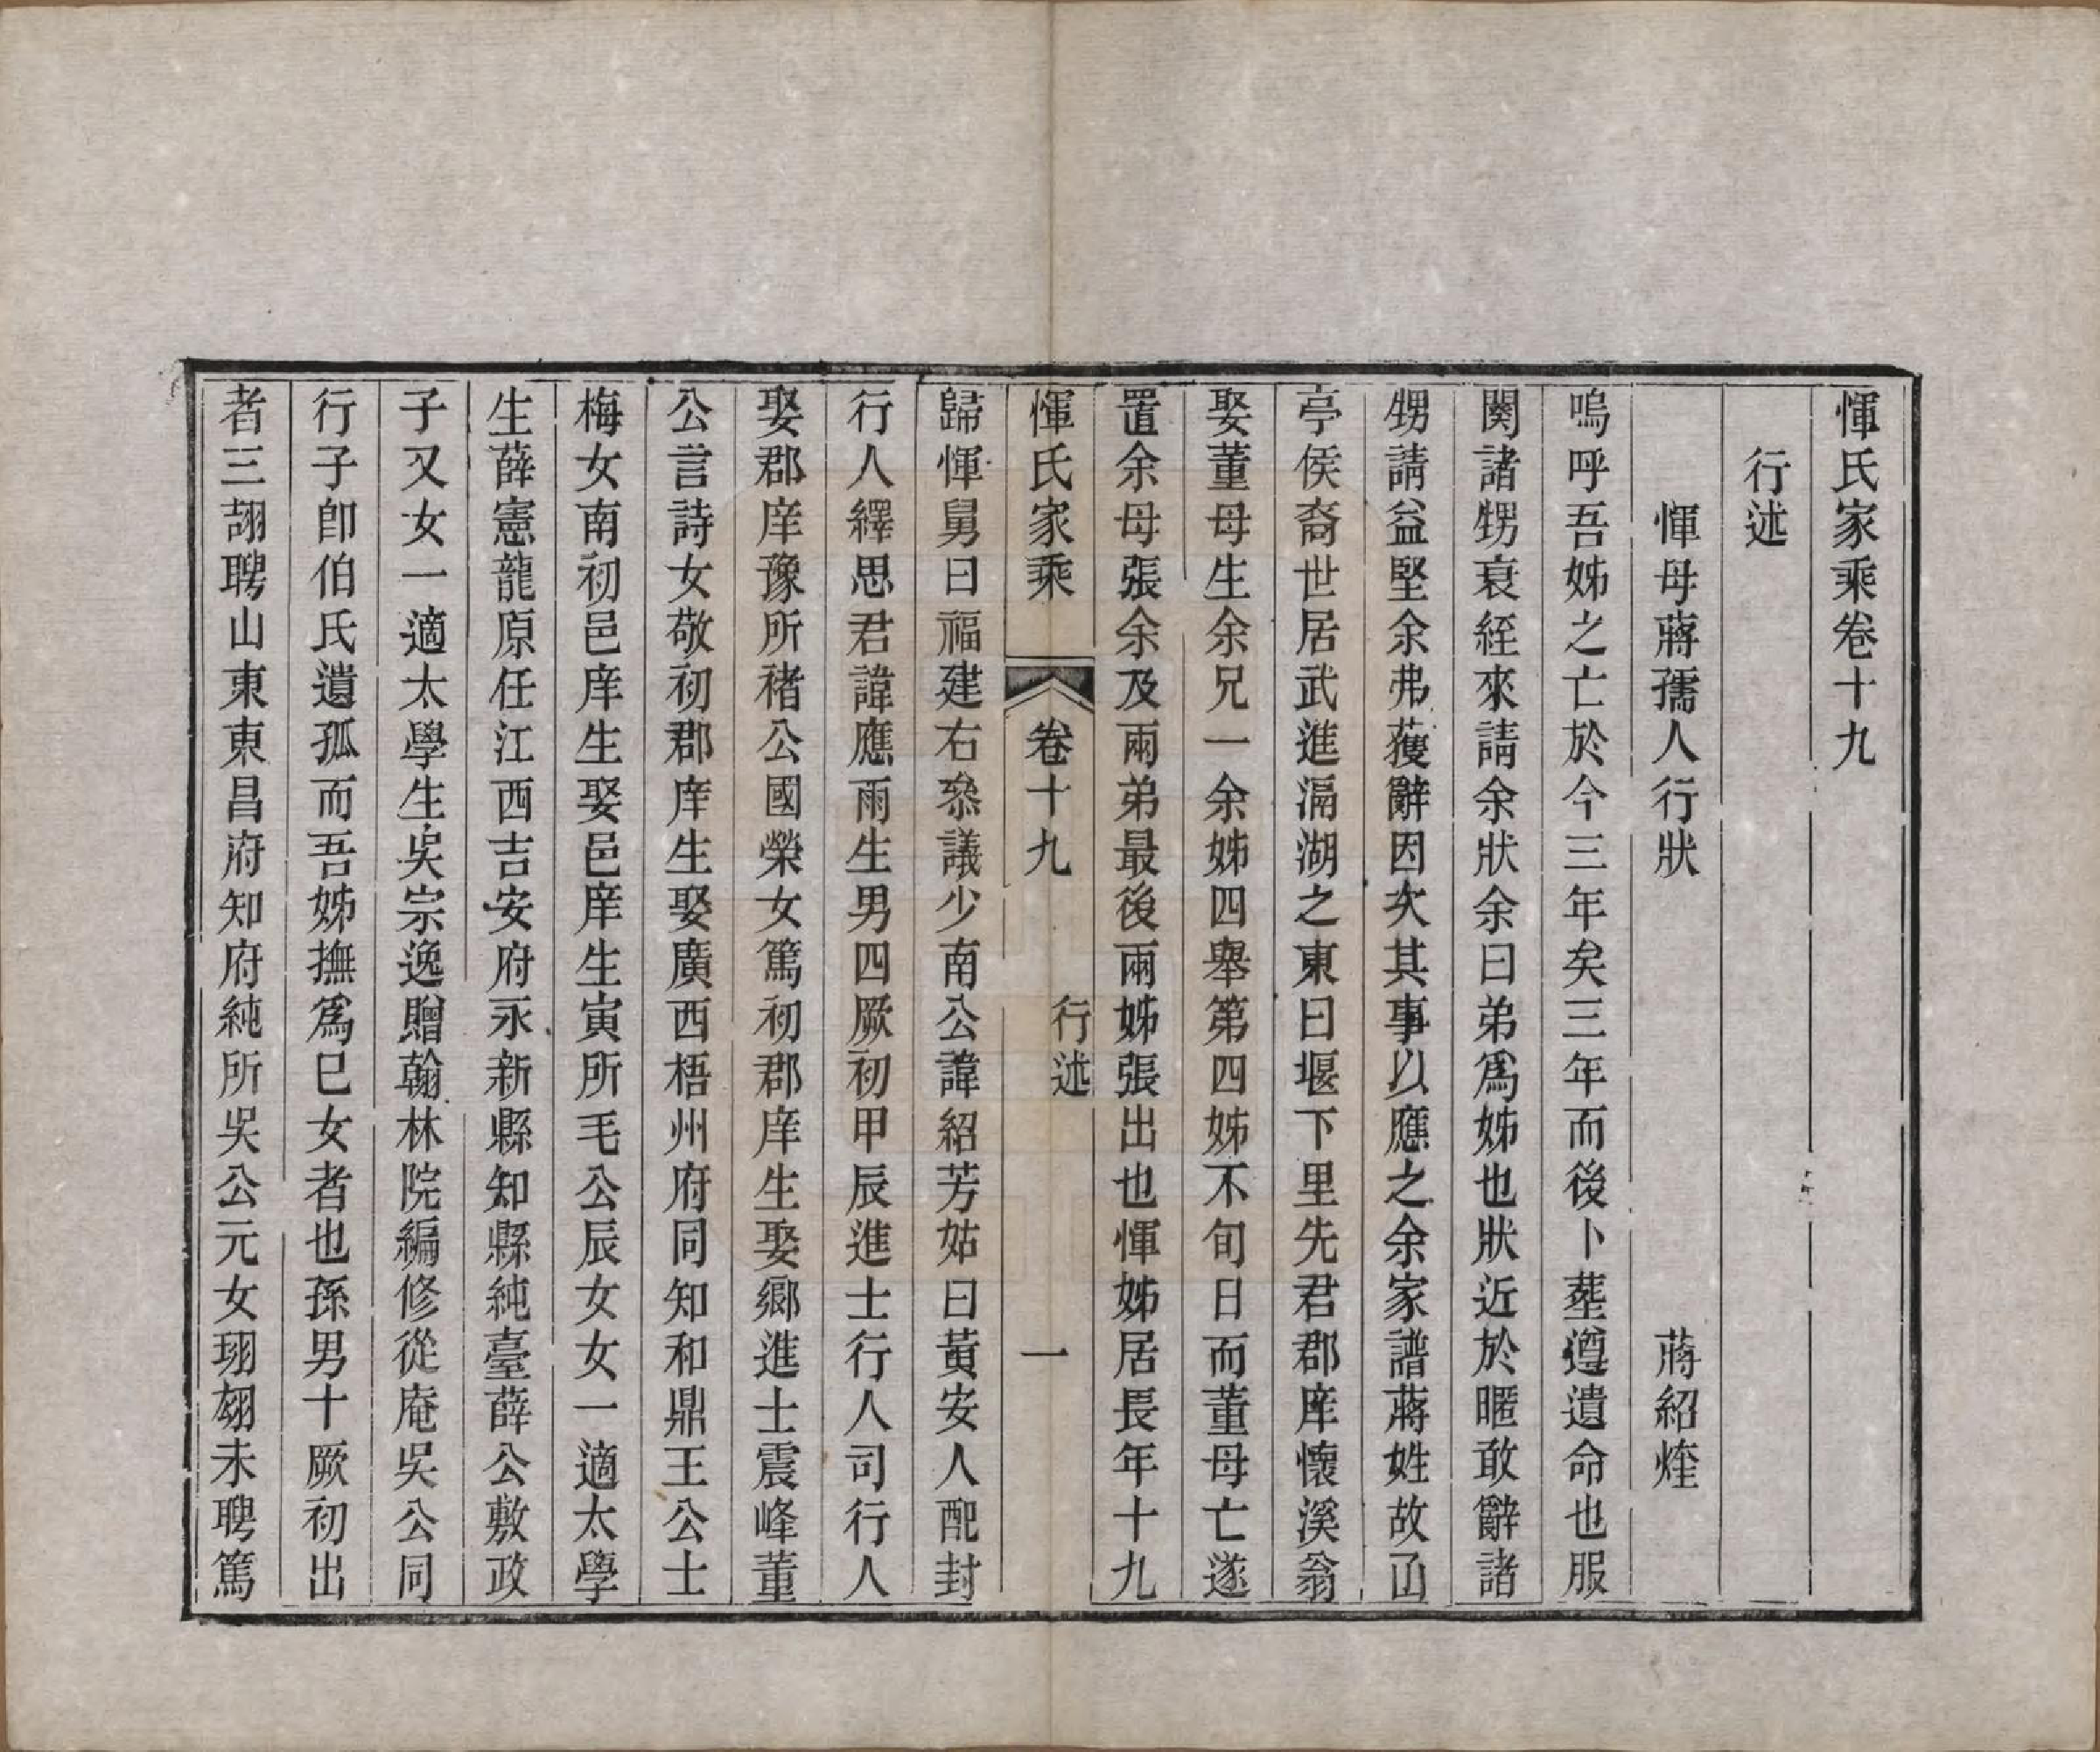 惲氏家乘卷十九
行述
惲母蔣孺人行狀　蔣紹煃
嗚呼吾姊之亡於今三年矣三年而後卜葬遵遺命也服
闋諸甥衰絰來請余狀余曰弟爲姊也狀近於暱敢辭諸
甥請益堅余弗獲辭因次其事以應之余家譜蔣姓故凾
亭侯裔世居武進滆湖之東曰堰下里先君郡庠懷溪翁
娶董母生余兄一余姊四舉第四姊不旬日而董母亡遂
置余母張余及兩弟最後兩姊張出也惲姊居長年十九
惲氏家乘　卷十九　行述　一
歸惲舅曰福建右叅議少南公諱紹芳姑曰黃安人配封
行人繹思君諱應雨生男四厥初甲辰進士行人司行人
娶郡庠豫所禇公國榮女篤初郡庠生娶鄉進士震峰董
公言詩女敬初郡庠生娶廣西梧州府同知和鼎王公士
梅女南初邑庠生娶邑庠生寅所毛公辰女女一適太學
生薛憲龍原任江西吉安府永新縣知縣純臺薛公敷政
子又女一適太學生吳宗逸贈翰林院編修從庵吳公同
行子卽伯氏遺孤而吾姊撫爲巳女者也孫男十厥初出
者三翓聘山東東昌府知府純所吳公元女珝翃未聘篤